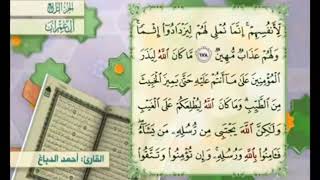 الجزء الرابع
آل عمران
لِأَنفُسِهِمْ ۚ إِنَّمَا نُمْلِي لَهُمْ لِيَزْدَادُوٓا۟ إِثْمًا ۚ
وَلَهُمْ عَذَابٌ مُّهِينٌ ١٧٨ مَّا كَانَ ٱللَّهُ لِيَذَرَ
ٱلْمُؤْمِنِينَ عَلَىٰ مَآ أَنتُمْ عَلَيْهِ حَتَّىٰ يَمِيزَ ٱلْخَبِيثَ
مِنَ ٱلطَّيِّبِ ۗ وَمَا كَانَ ٱللَّهُ لِيُطْلِعَكُمْ عَلَى ٱلْغَيْبِ
وَلَٰكِنَّ ٱللَّهَ يَجْتَبِي مِن رُّسُلِهِۦ مَن يَشَآءُ ۖ
فَـَٔامِنُوا۟ بِٱللَّهِ وَرُسُلِهِۦ ۚ وَإِن تُؤْمِنُوا۟ وَتَتَّقُوا۟
القارئ: أحمد الدباغ